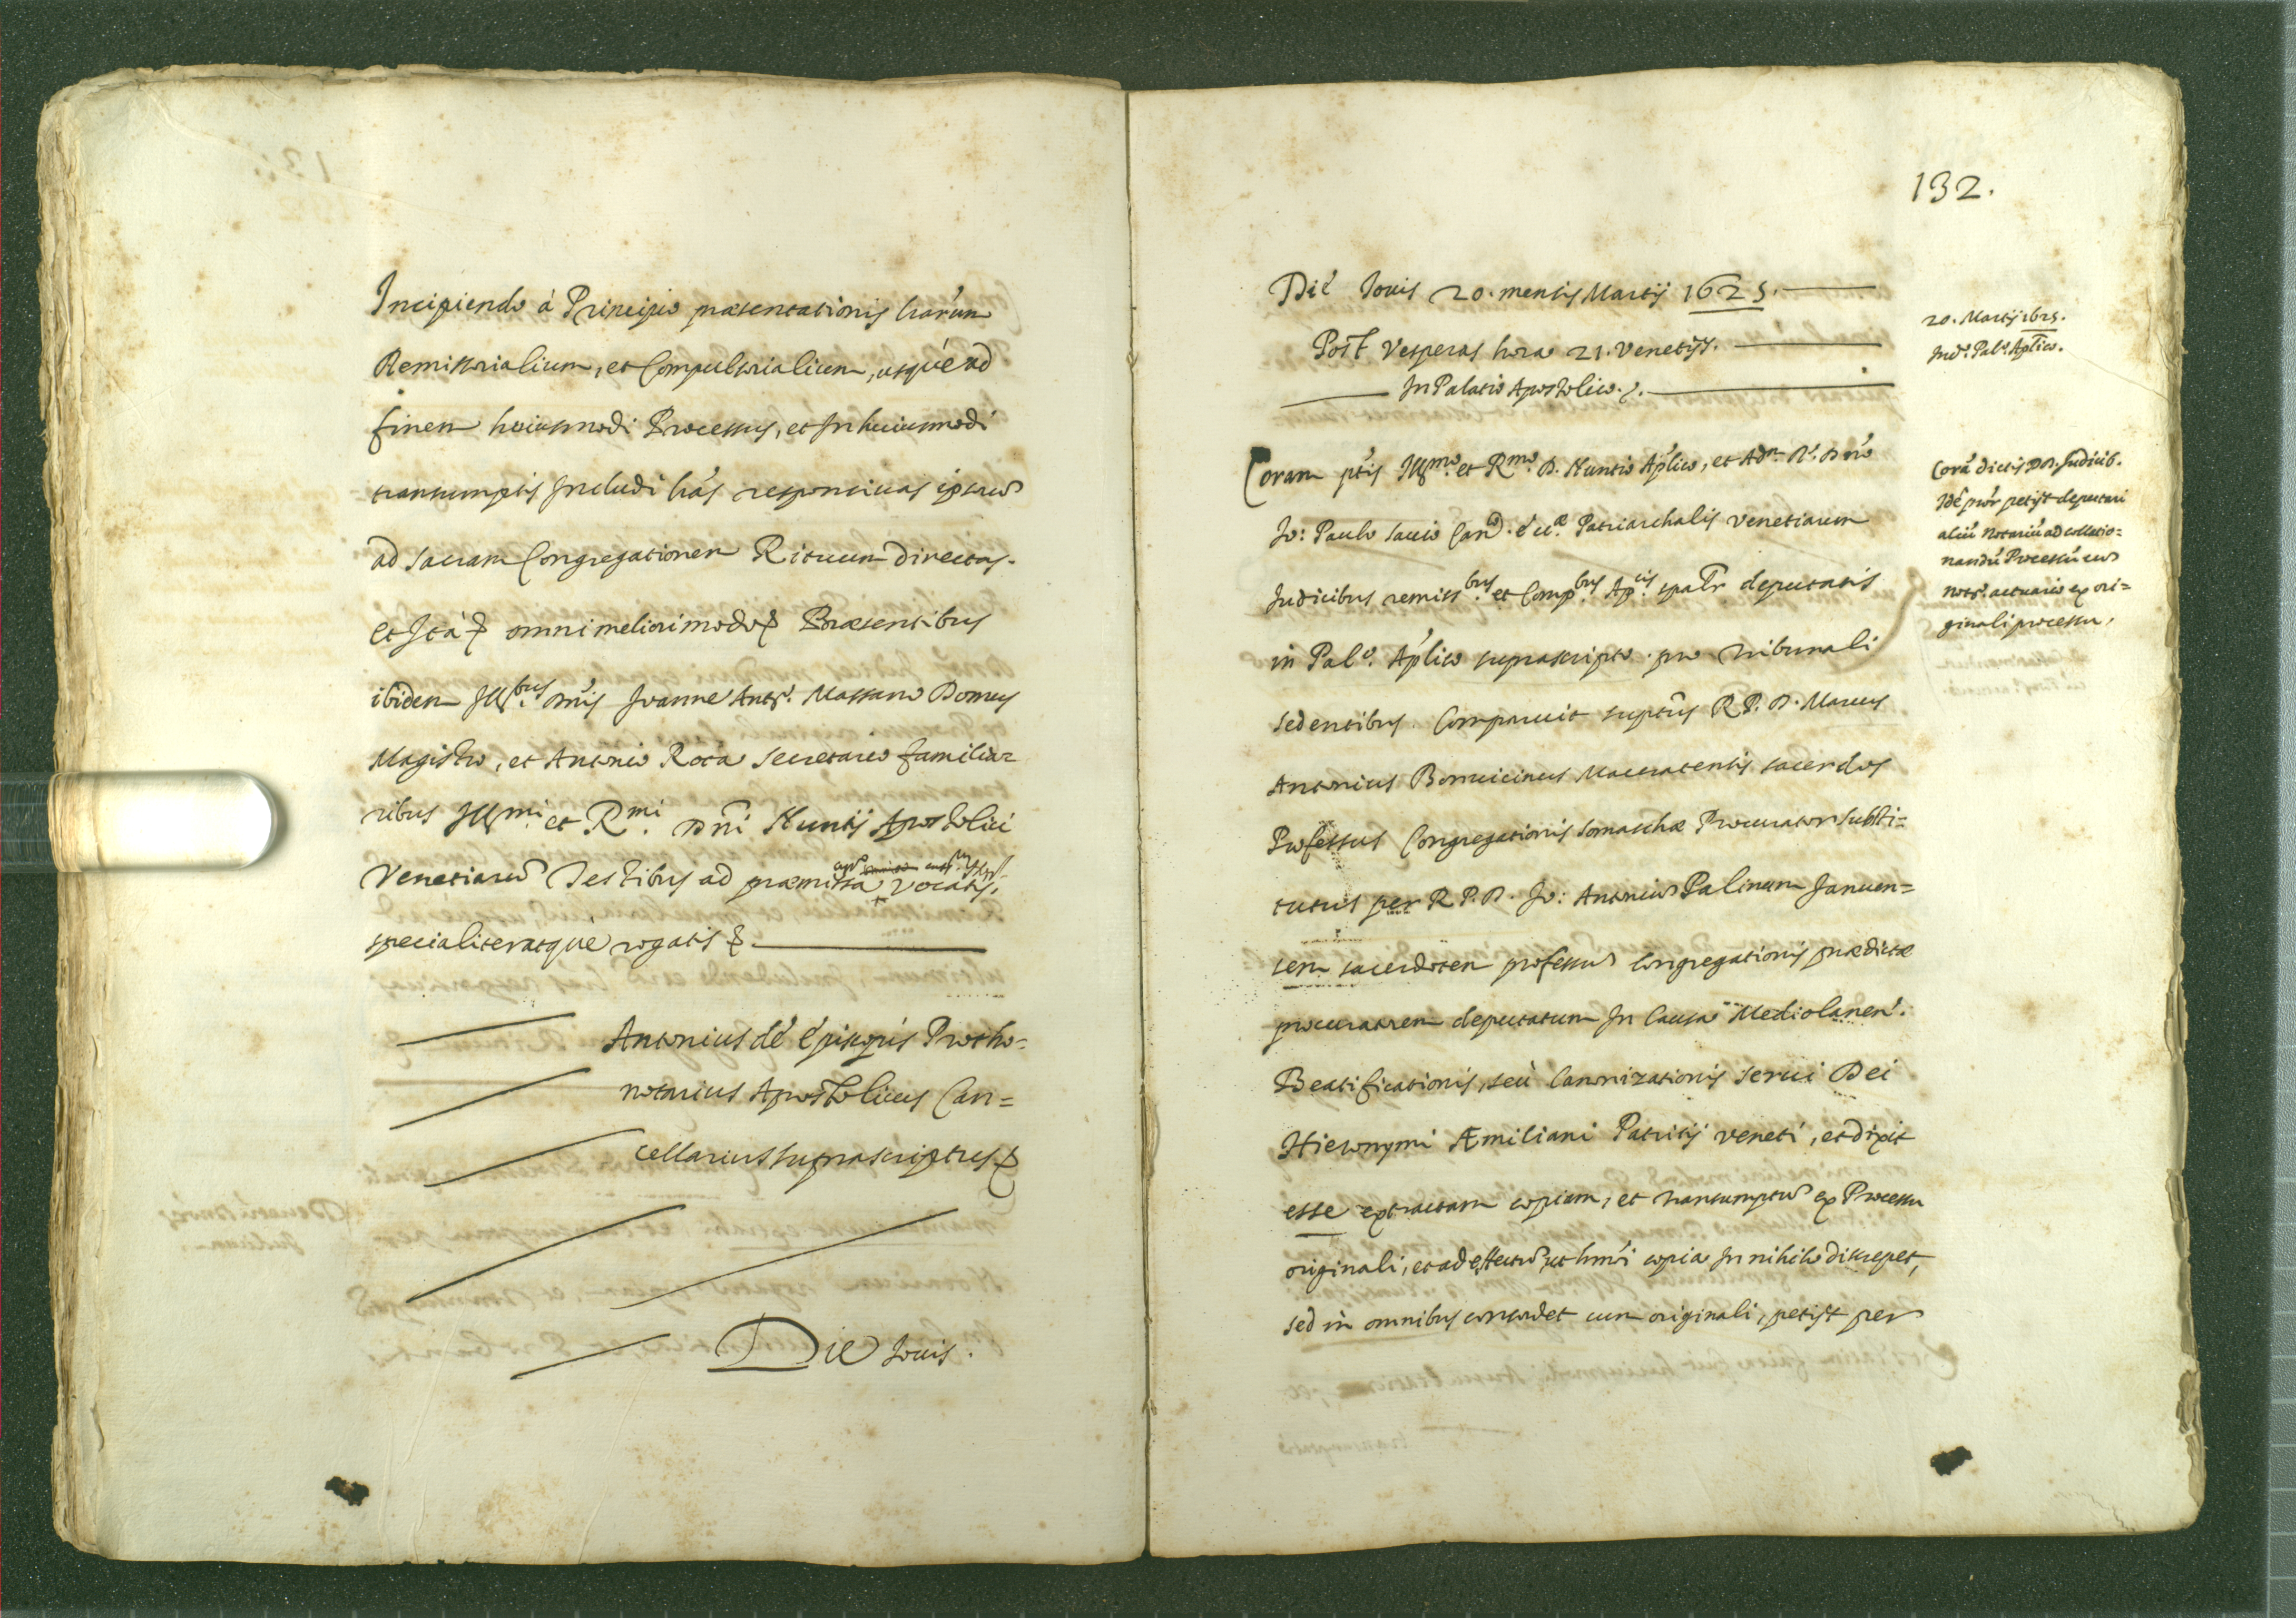 Incipiendo à Principio præsentationis l̃rarum
Remissorialium, et Compulsorialium, usque ad
finem huiusmodi Processus, et In huiusmodi
transumptis Includi l̃ras responsivas ipsarũ
ad sacram Congregationem Rituum directas.
Et Ità &c omni meliori modo &c Præsentibus
ibidem Ill.bus Dñis Joanne Antᵒ. Massano Domus
Magistro, et Antonio Rota Secretario familia=
ribus Ill.mi et R.mi Dñi Nuntij Apostolici
Venetiarũ Testibus ad præmissa vocatis,
specialiter atque rogatis &c
Antonius de Episcopis Protho=
notarius Apostolicus Can=
cellarius suprascriptus &c
Die Jovis.
132.
Die Jovis 20. mensis Martij 1625.
Post Vesperas hora 21. Venetijs.
In Palatio Apostolico.
20. Martij 1625.
In dᵒ. Palᵒ. Aplico.
Coram p̃tis Ill.mo et R.mo D. Nuntio Aplico, et Adm. R. Dño
Jo: Paulo Savio Canco. Ecc.æ Patriarchalis Venetiarum
Judicibus remiss.bus et Comp.bus Ap.cis spalr deputatis
in Palᵒ. Aplico suprascripto pro tribunali
sedentibus. Comparuit suptus R. P. D. Marcus
Antonius Bonvicinus Maceratensis sacerdos
Professus Congregationis Somaschæ Procurator substi=
tutus per R. P. D. Jo: Antoniũ Palinum Januen=
sem sacerdotem professũ Congregationis prædictæ
procuratorem deputatum In Causa Mediolanen.
Beatificationis, seù Canonizationis servi Dei
Hieronymi Æmiliani Patritij Veneti, et dixit
esse extractam copiam, et transumptũ ex Processu
originali, et ad effectũ, ut hmõi copia In nihilo discrepet,
sed in omnibus concordet cum originali, petijt per
Corã dictis DD. Judicib.
Idẽ pror petijt deputari
aliũ Notariũ ad collatio=
nandũ Processũ cũ
notᵒ. actuario ex ori=
ginali processu.